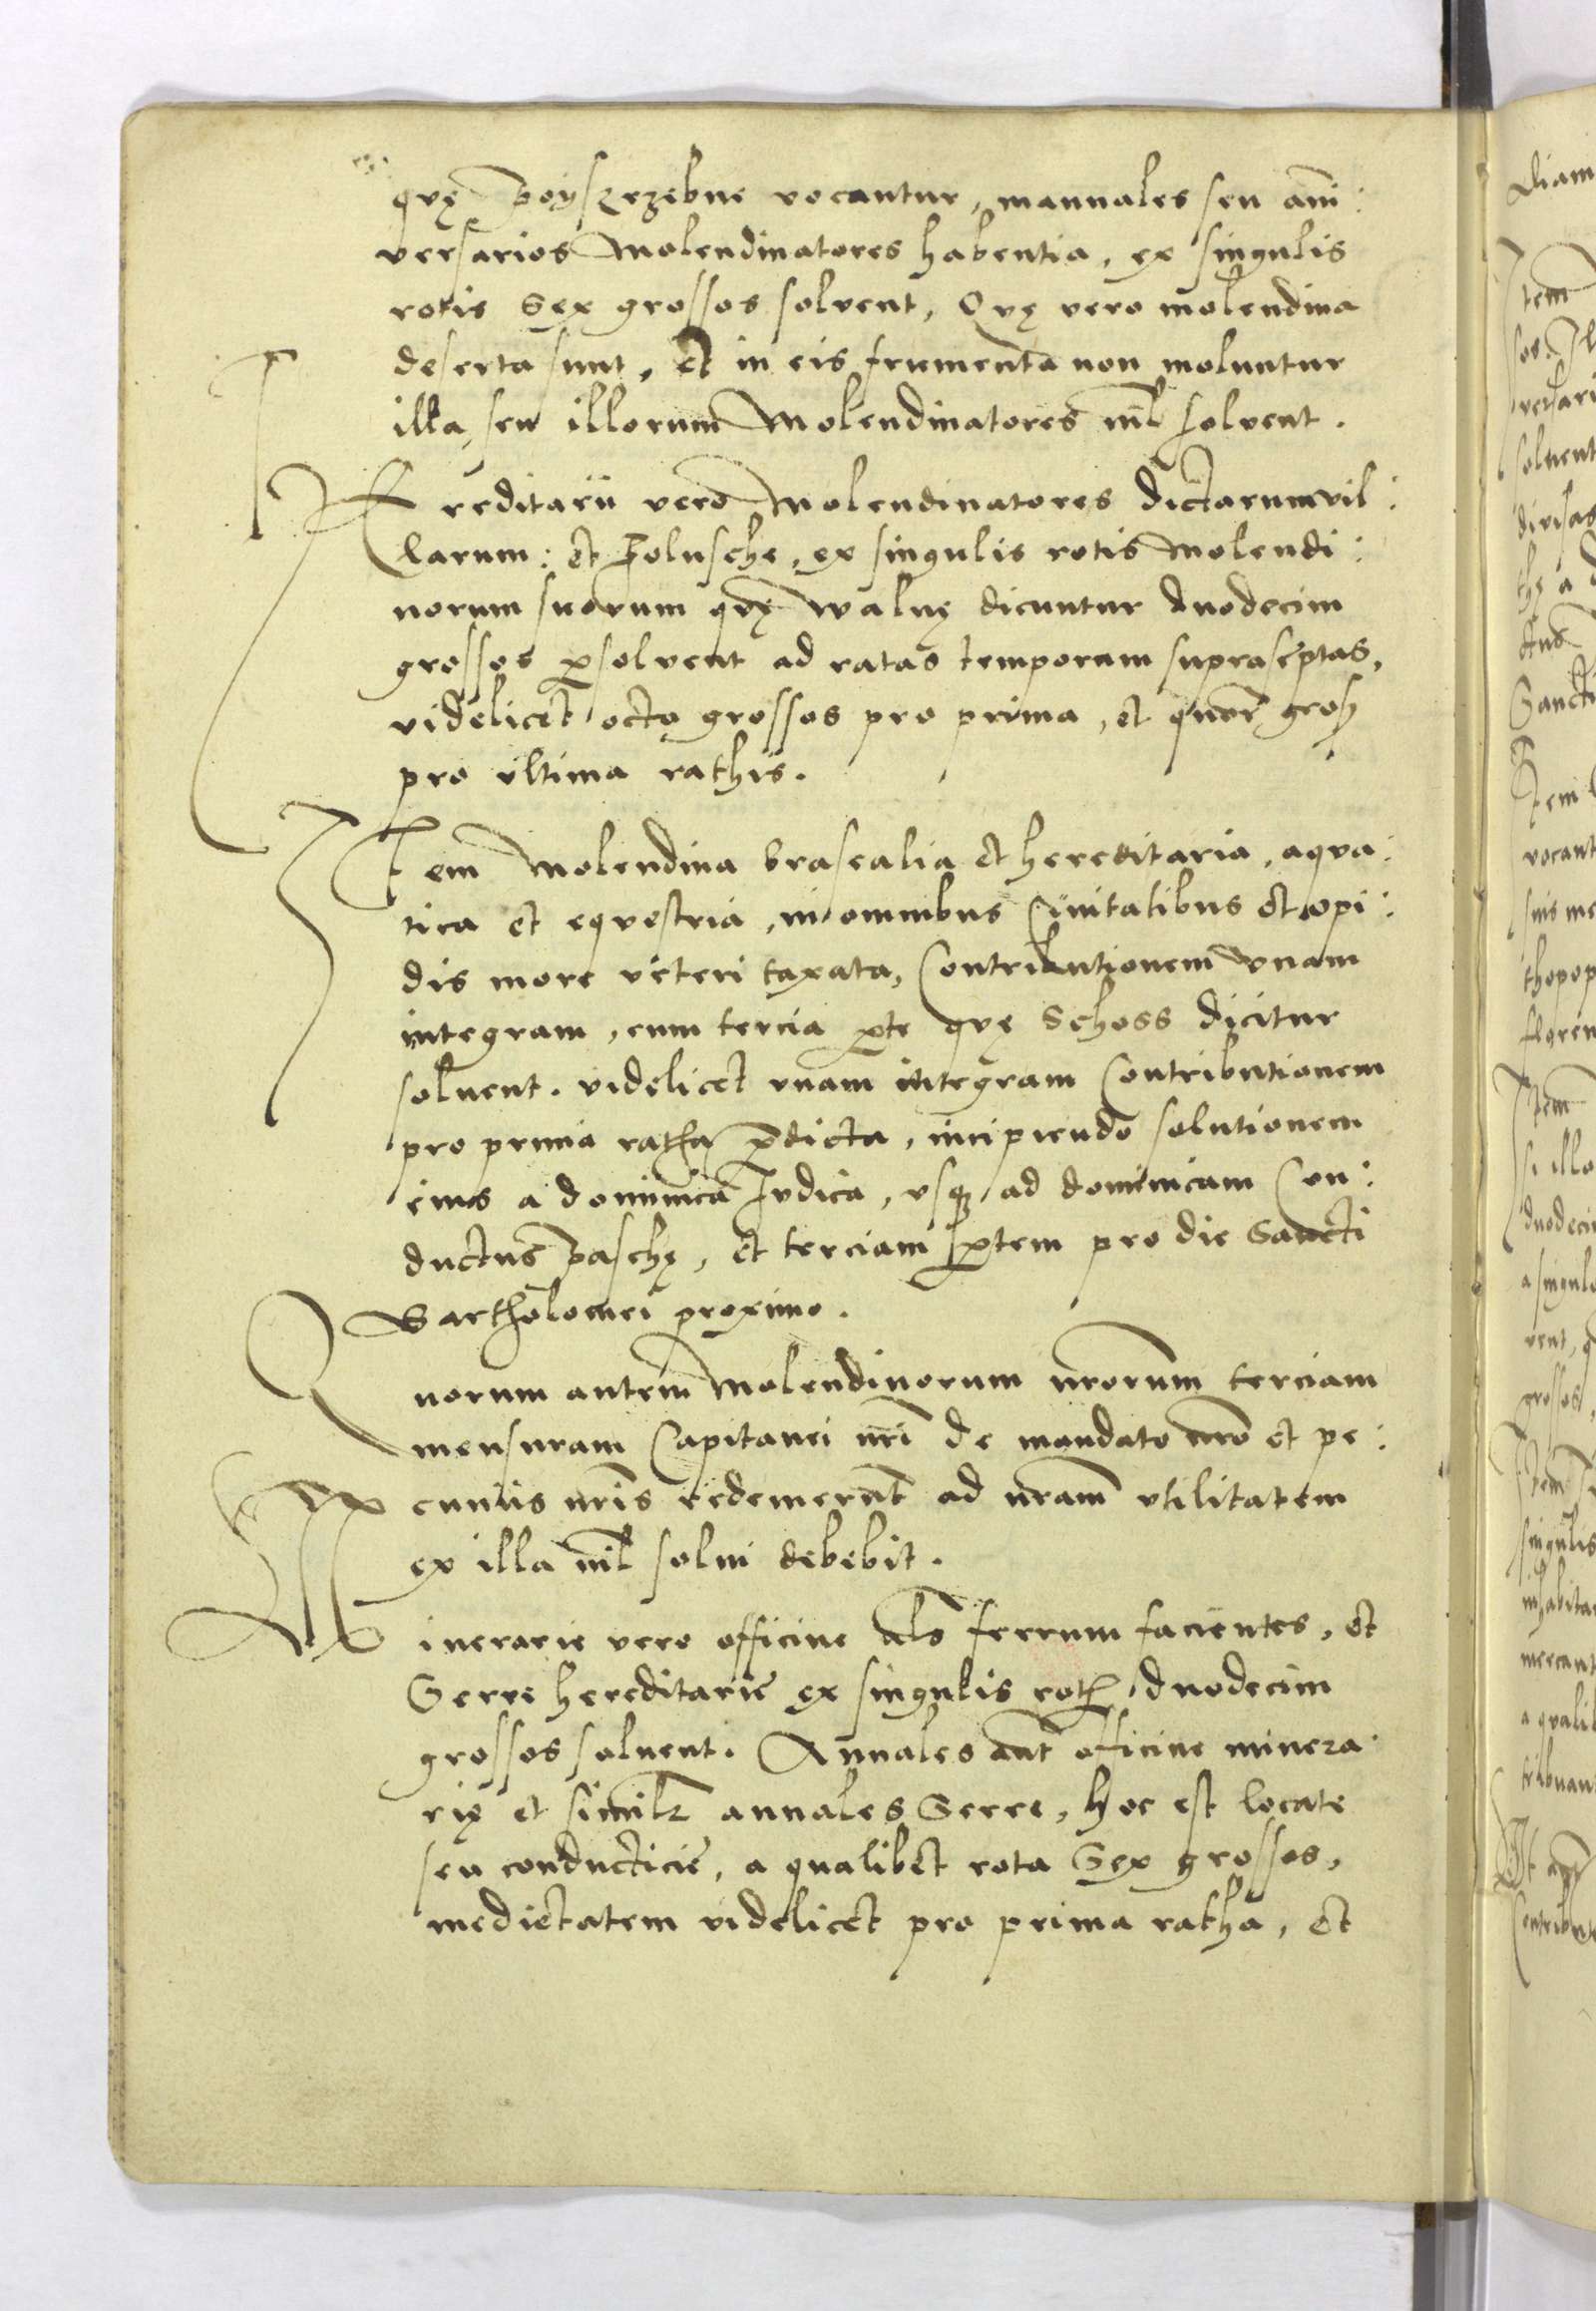 quę Poyszrzebne vocantur, mannales seu anni:
versarios Molendinatores habentia, ex singulis
rotis Sex grossos solvent, Quę vero molendina
deserta sunt, et in eis frumenta non moluntur
illa, seu illorum Molendinatores nil solvent.
Hereditarii vero Molendinatores dictarum vil:
larum: et Polusche, ex singulis rotis Molendi:
norum suorum quę walnę dicuntur duodecim
grossos psolvent ad ratas temporum suprascptas,
videlicet octo grossos pro prima, et quor gross
pro ultima rathis.
Item Molendina brasealia et hereditaria, aqua:
tica et equestria, in omnibus Civitatibus et opi:
dis more veteri taxata, Contributionem unam
integram, cum tercia pte quę Schoss dicitur
soluent. videlicet vnam integram Contributionem
pro prima ratha pdicta, incipiendo solutionem
eius a dominica Iudica, vsq ad dominicam Con:
ductus Paschę, et terciam ptem pro die Sancti
Bartholomei proximo.
Quorum autem Molendinorum nrorum terciam
mensuram Capitanei nri de mandato nro et pe:
cuniis nris redemerunt ad nram vtilitatem
ex illa nil solui debebit.
Minerarie vero officine als ferrum facientes, et
Serre hereditarie ex singulis roth duodecim
grossos soluent. Annales aut officine minera
rię et similr annales Serre, hoc est locate
seu conducticie, a qualibet rota Sex grossos,
medietatem videlicet pro prima ratha, et